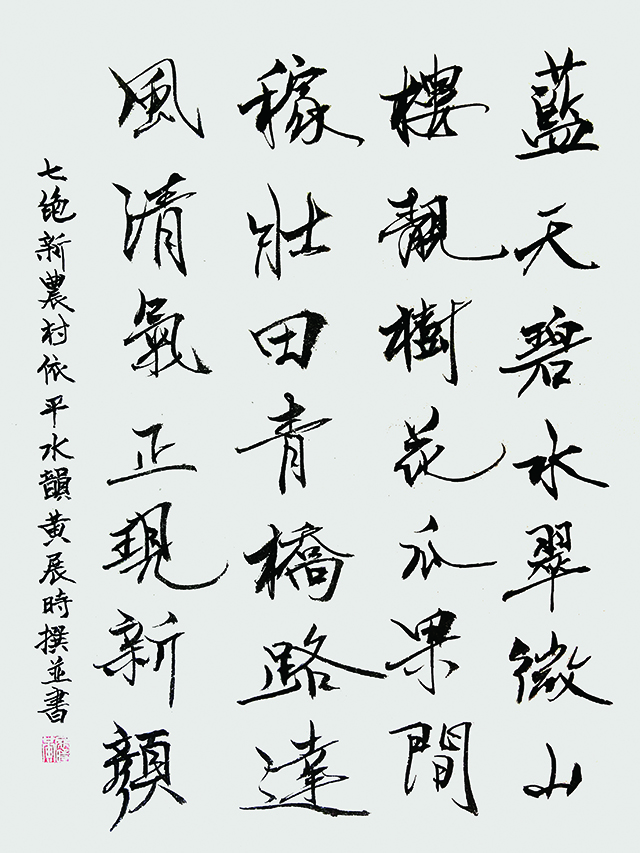 藍天碧水翠微山
樓靚樹花瓜果間
稼壯田青橋路達
風清氣正現新顏
七絕新農村依平水韻黃展時撰並書